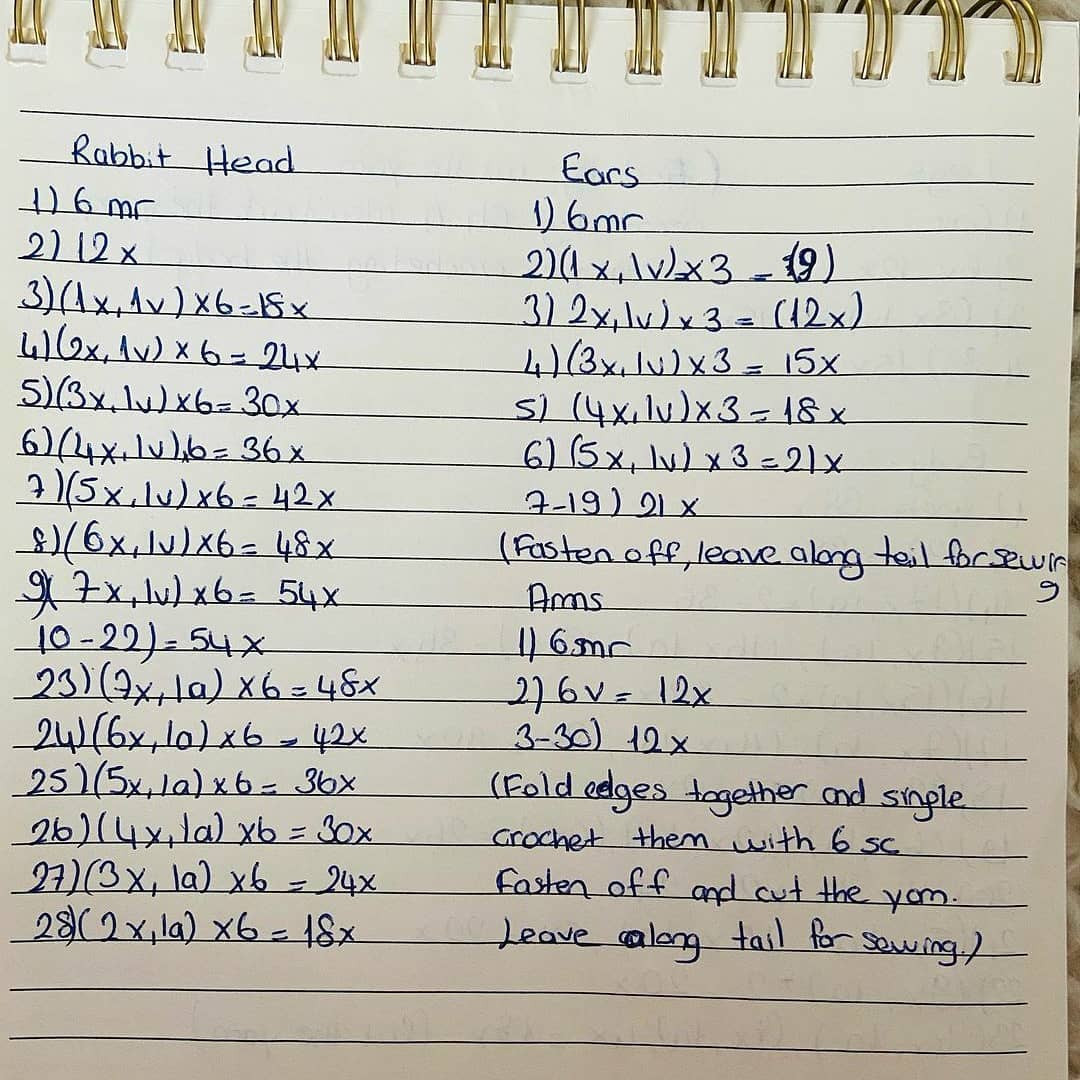 Rabbit Head
1) 6 mr
2) 12 x
3) (1x, 1v) x6=18x
4) (2x, 1v) x 6 = 24x
5) (3x, 1v) x6= 30x
6) (4x, 1v), 6 = 36x
7) (5x, 1v) x6 = 42x
8) (6x, 1v) x6= 48x
9) (7x, 1v) x6= 54x
10-22) = 54x
23) (7x, 1a) x6 = 48x
24) (6x, 1a) x6 = 42x
25) (5x, 1a) x6 = 36x
26) (4x, 1a) x6 = 30x
27) (3x, 1a) x6 = 24x
28) (2x, 1a) x6 = 18x
Ears
1) 6mr
2) (1x, 1v) x3 = (9)
3) 2x, 1v) x 3 = (12x)
4) (3x, 1v) x3 = 15x
5) (4x, 1v) x3 = 18x
6) (5x, 1v) x3 = 21x
7-19) 21 x
(Fasten off, leave along teil for sewin
g
Arms
1) 6mr
2) 6v = 12x
3-30) 12x
(Fold edges together and single
crochet them with 6 sc
Fasten off and cut the yarn.
Leave along tail for sewing.)